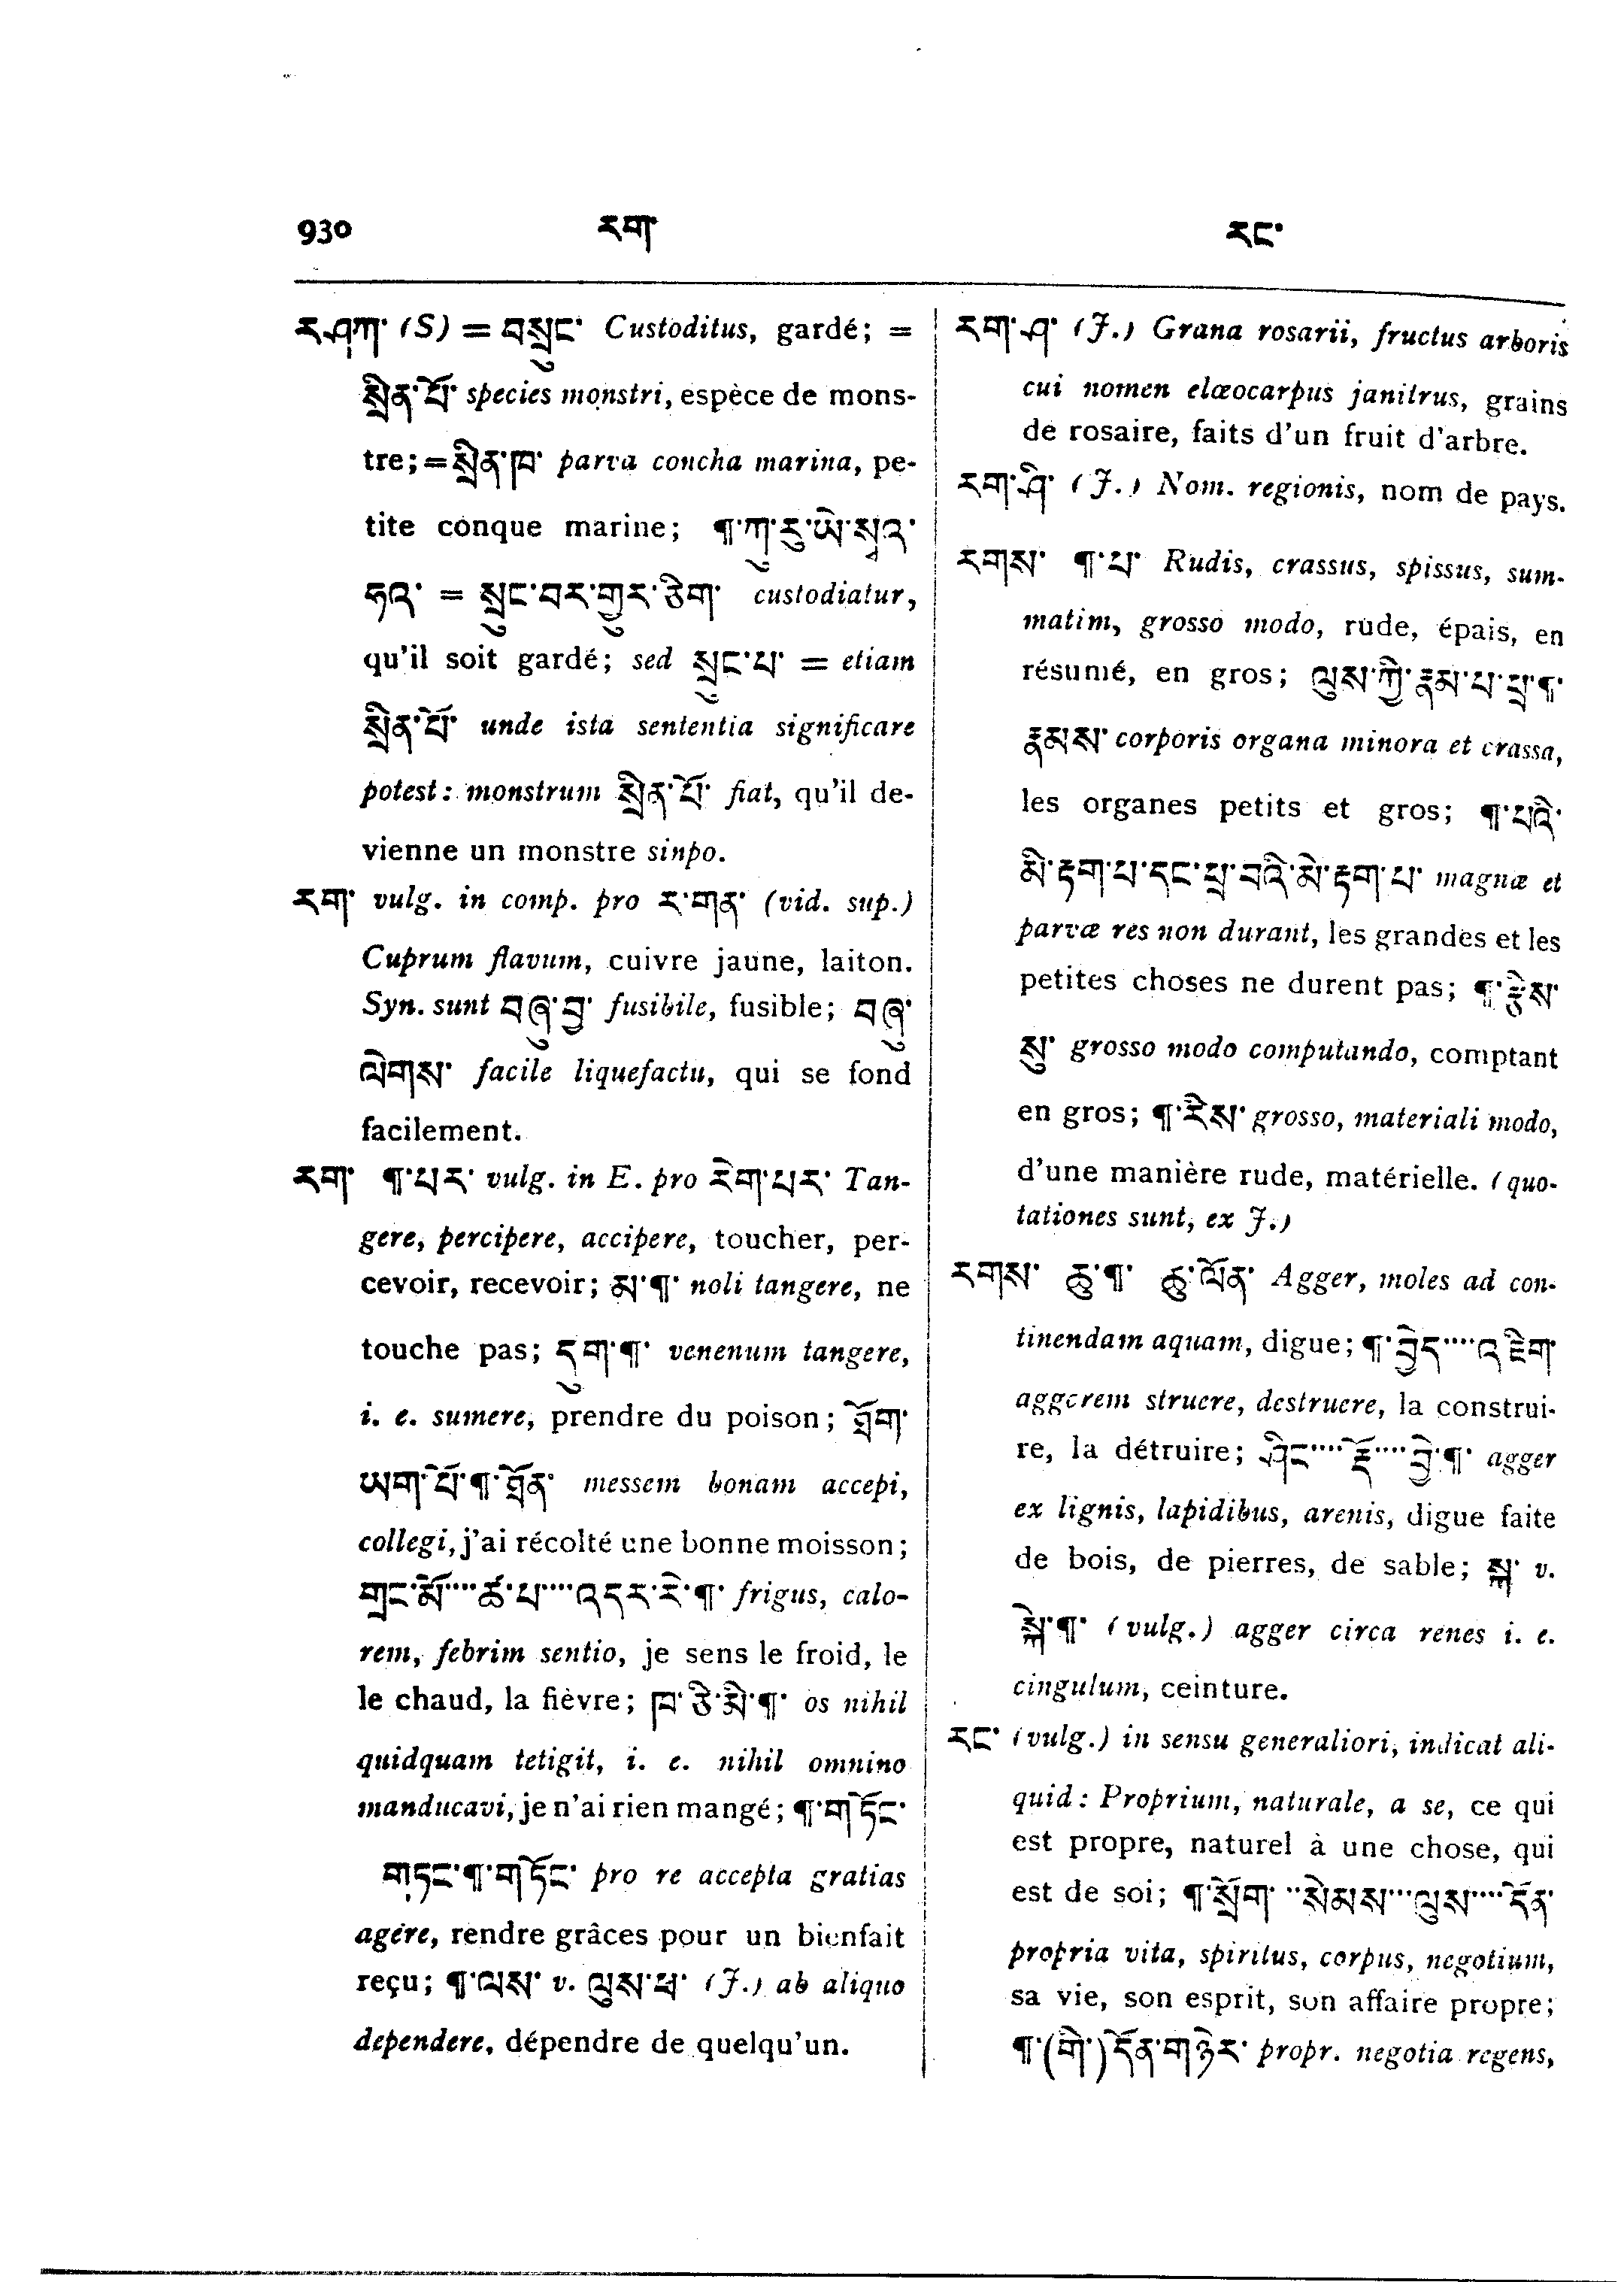 930 རག་ རང་
ར་ཤཀ་ (S) = བསྲུང་ Custoditus, gardé; =
སྲིན་པོ་ species monstri, espèce de mons-
tre; = སྲིན་ཁ་ parva concha marina, pe-
tite conque marine; ¶་ཀུ་རུ་ཡེ་སྭའ་
ཧའ་ = སྲུང་བར་གྱུར་ཅིག་ custodiatur,
qu'il soit gardé; sed སྲུང་པ་ = etiam
སྲིན་པོ་ unde ista sententia significare
potest: monstrum སྲིན་པོ་ fiat, qu'il de-
vienne un monstre sinpo.
རག་ vulg. in comp. pro ར་གན་ (vid. sup.)
Cuprum flavum, cuivre jaune, laiton.
Syn. sunt བཞུ་བྱ་ fusibile, fusible; བཞུ་
ལེགས་ facile liquefactu, qui se fond
facilement.
རག་ ¶་པར་ vulg. in E. pro རེག་པར་ Tan-
gere, percipere, accipere, toucher, per-
cevoir, recevoir; མ་¶་ noli tangere, ne
touche pas; དུག་¶་ venenum tangere,
i. e. sumere, prendre du poison; ཐོག་
ཡག་པོ་¶་ཐོན་ messem bonam accepi,
collegi, j'ai récolté une bonne moisson;
གྲང་མོ་...ཚ་པ་...འདར་རེ་¶་ frigus, calo-
rem, febrim sentio, je sens le froid, le
le chaud, la fièvre; ཁ་ཅི་མི་¶་ os nihil
quidquam tetigit, i. e. nihil omnino
manducavi, je n'ai rien mangé; ¶་གཏོང་
གཏང་¶་གཏོང་ pro re accepta gratias
agere, rendre grâces pour un bienfait
reçu; ¶་ལས་ v. ལུས་པ་ (J.) ab aliquo
dependere, dépendre de quelqu'un.
རག་ཤ་ (J.) Grana rosarii, fructus arboris
cui nomen elæocarpus janitrus, grains
de rosaire, faits d'un fruit d'arbre.
རག་ཤི་ (J.) Nom. regionis, nom de pays.
རགས་ ¶་པ་ Rudis, crassus, spissus, sum-
matim, grosso modo, rude, épais, en
résumé, en gros; ལུས་ཀྱི་རྣམ་པ་ཕྲ་¶་
རྣམས་ corporis organa minora et crassa,
les organes petits et gros; ¶་པའི་
མི་རྟག་པ་དང་ཕྲ་བའི་མི་རྟག་པ་ magnæ et
parvæ res non durant, les grandes et les
petites choses ne durent pas; ¶་རྩིས་
སུ་ grosso modo computando, comptant
en gros; ¶་རིས་ grosso, materiali modo,
d'une manière rude, matérielle. (quo-
tationes sunt, ex J.)
རགས་ ཆུ་¶་ ཆུ་ལོན་ Agger, moles ad con-
tinendam aquam, digue; ¶་བྱེད་...འཇིག་
aggerem struere, destruere, la construi-
re, la détruire; ཤིང་...རྡོ་...བྱེ་¶་ agger
ex lignis, lapidibus, arenis, digue faite
de bois, de pierres, de sable; སྐ་ v.
སྐེ་¶་ (vulg.) agger circa renes i. e.
cingulum, ceinture.
རང་ (vulg.) in sensu generaliori, indicat ali-
quid: Proprium, naturale, a se, ce qui
est propre, naturel à une chose, qui
est de soi; ¶་སྲོག་ ..སེམས་...ལུས་...དོན་
propria vita, spiritus, corpus, negotium,
sa vie, son esprit, son affaire propre;
¶་(གི་)དོན་གཉེར་ propr. negotia regens,